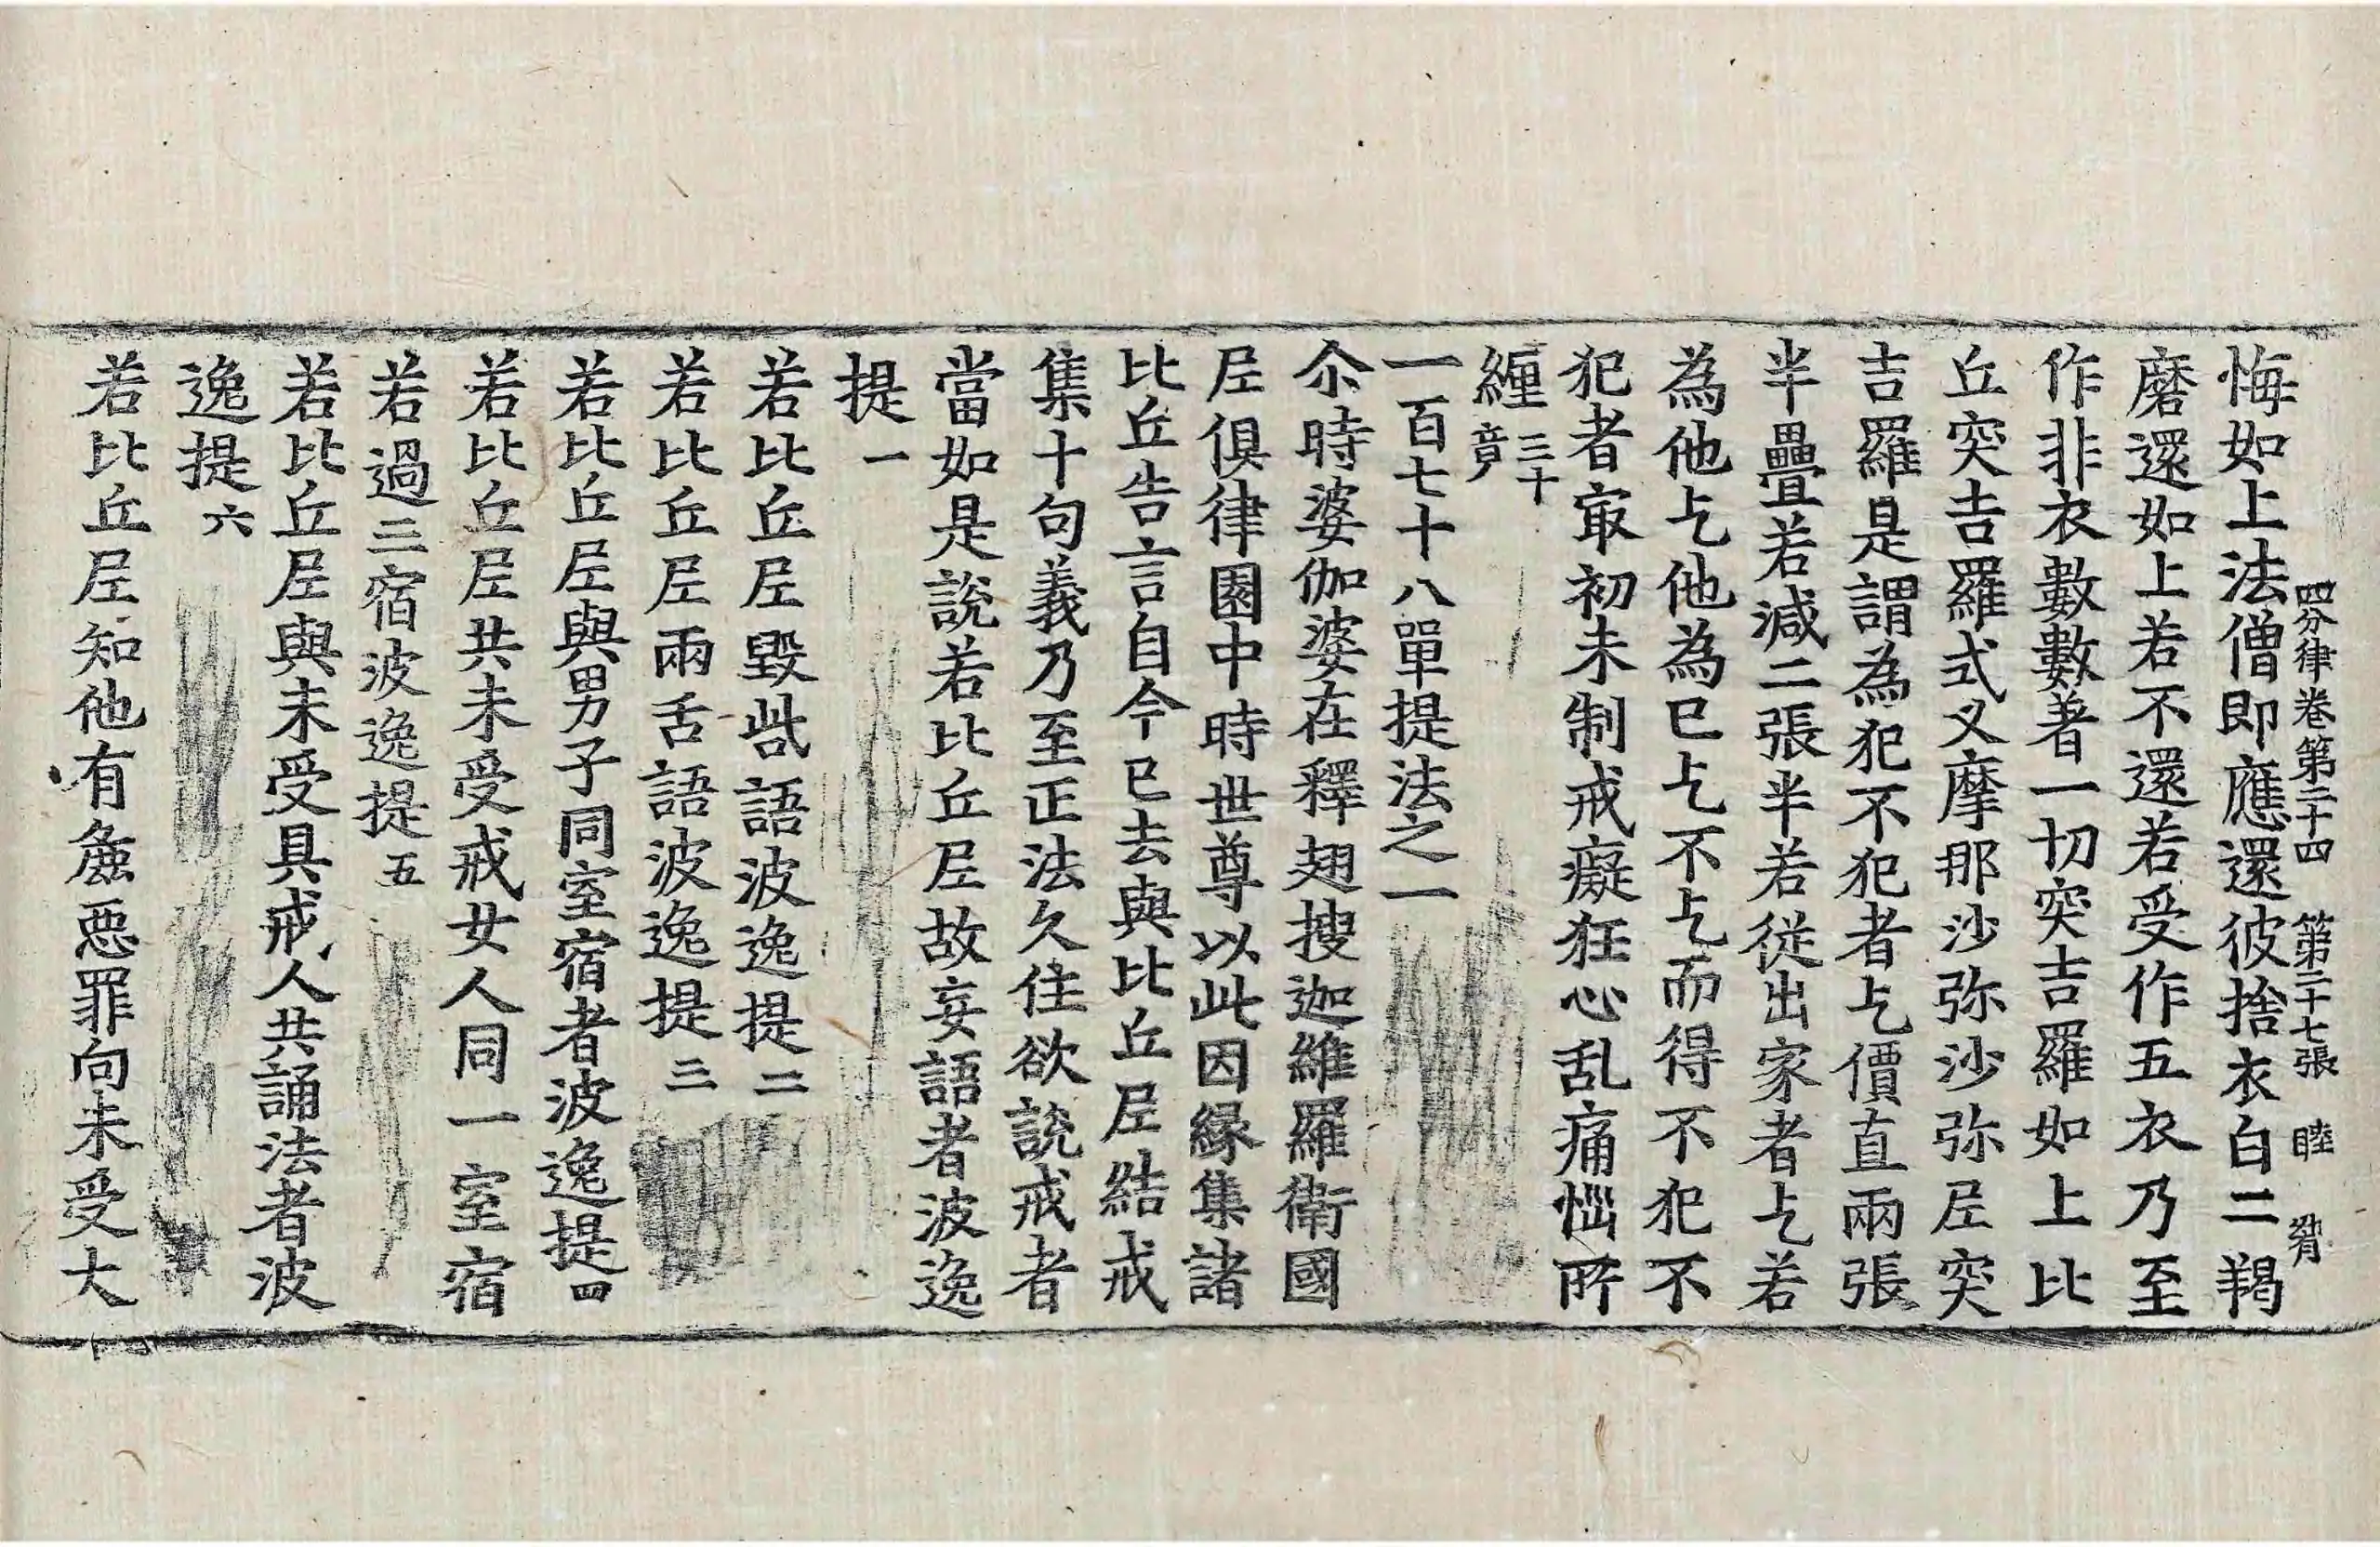 四分律卷第二十四 第二十七張 睦
悔如上法僧即應還彼捨衣白二羯
磨還如上若不還若受作五衣乃至
作非衣數數著一切突吉羅如上比
丘突吉羅式叉摩那沙弥沙弥尼突
吉羅是謂為犯不犯者乞價直兩張
半疊若減二張半若從出家者乞若
為他乞他為已乞不乞而得不犯不
犯者㝡初未制戒癡狂心乱痛惱所
纏三十竟
一百七十八單提法之一
尒時婆伽婆在釋翅搜迦維羅衛國
尼俱律園中時世尊以此因縁集諸
比丘告言自今已去與比丘尼結戒
集十句義乃至正法久住欲說戒者
當如是說若比丘尼故妄語者波逸
提一
若比丘尼毀呰語波逸提二
若比丘尼兩舌語波逸提三
若比丘尼與男子同室宿者波逸提四
若比丘尼共未受戒女人同一室宿
若過三宿波逸提五
若比丘尼與未受具戒人共誦法者波
逸提六
若比丘尼知他有麁惡罪向未受大